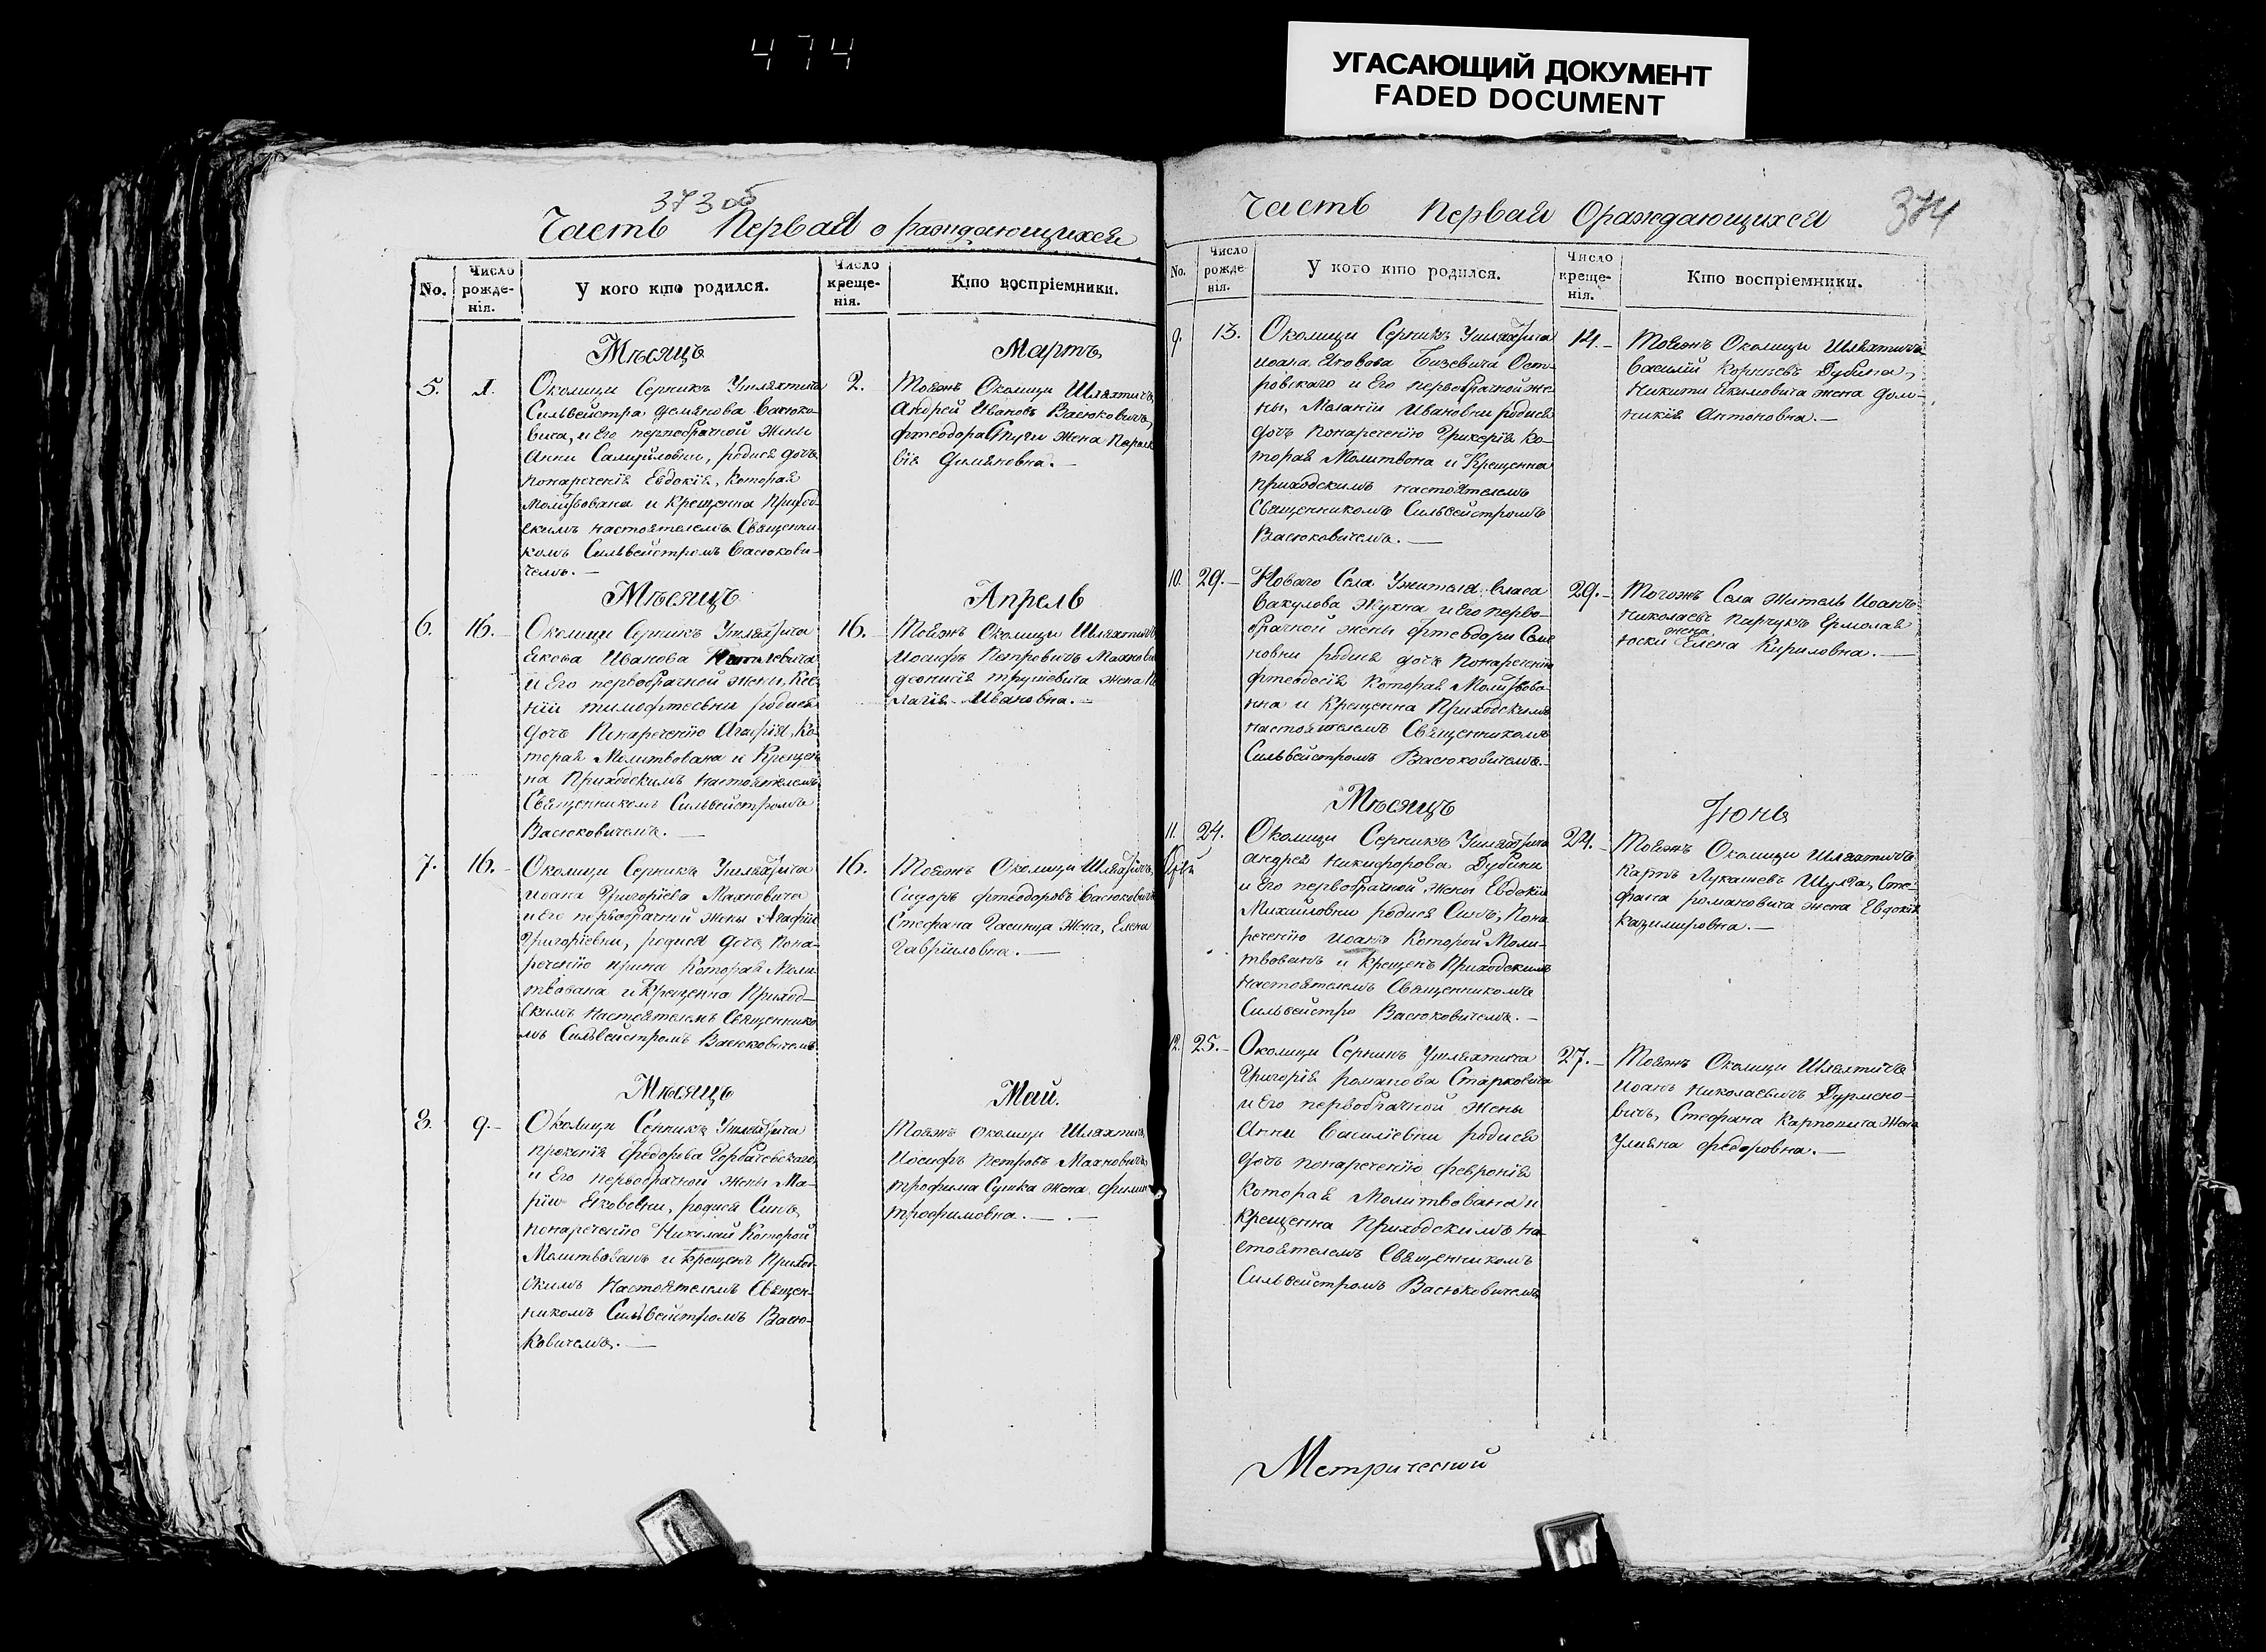 474
УГАСАЮЩИЙ ДОКУМЕНТ
FADED DOCUMENT
373 об
Часть Первая о раждающихся
No.
Число рожде-нія.
У кого кто родился.
Число креще-нія.
Кто воспріемники.
Мѣсяцъ Мартъ
5. 1. 2.
Околицы Серникъ Ушляхтича
Сильвейстра Демянова Васюко-
вича, и Его первобрачной Жены
Анны Самуйловны, родися дочь
понареченія Евдокія, Которая
Молитвована и Крещенна Приход-
скимъ настоятелемъ Священни-
комъ Сильвейстромъ Васюкови-
чемъ. —
Тоеяжъ Околицы Шляхтичъ
Андрей Ивановъ Васюковичъ,
Фтеодора жена
Димяновна. —
Мѣсяцъ Апрель
6. 16. 16.
Околицы Серникъ Ушляхтича
Якова Иванова
и Его первобрачной жены, Ксе-
ніи тимофтеевны родися
дочь Понареченію Агафія, Ко-
торая Молитвована и Крещен-
на Приходскимъ Настоятелемъ
Священникомъ Сильвейстромъ
Васюковичемъ. —
Тоеяжъ Околицы Шляхтичъ
Иосифъ Петровичъ
деонисія трушевича жена
Ивановна. —
7. 16. 16.
Околицы Серникъ Ушляхтича
иоана Григорїева Махновича
и Его первобрачной жены Агафіи
Григорїевны, родися дочь Пона-
реченію ирина Которая Моли-
твована и Крещенна Приход-
скимъ Настоятелемъ Священнико-
мъ Сильвейстромъ Васюковичемъ
Тоеяжъ Околицы Шляхтичъ,
Сидоръ фтеодоровъ Васюковичъ
Стефана Жена, Елена
Гавріиловна. —
Мѣсяцъ Май.
8. 9.
Околицы Серникъ Ушляхтича
прокопія федорова Горбачевскаго
и Его первобрачной жены Ма-
рїи Якововны, родися Синъ,
понареченію Николай Которой
Молитвованъ и Крещенъ Приход-
скимъ Настоятелемъ Священ-
никомъ Сильвейстромъ Васю-
ковичемъ. —
Тоеяжъ околицы Шляхтичъ,
Иосифъ Петровъ Махновичъ
трофима Сушка жена
трофимовна. —
Часть Первая Ораждающихся
374
No.
Число рожде-нія.
У кого кто родился.
Число креще-нія.
Кто воспріемники.
9. 13. 14.
Околицы Серникъ Ушляхтича
иоана Яковова Бизевича Ост-
ровскаго и Его первобрачной же-
ны, Меланіи Ивановны родися
дочь Понареченію Гликерія Ко-
торая Молитвона и Крещенна
приходскимъ настоятелемъ
Священникомъ Сильвейстромъ
Васюковичемъ. —
Тоеяжъ Околицы Шляхтичъ
Василій Корнѣевъ Дубина,
Никити Екимовича жена дом-
никія Антоновна. —
10. 29. 29.
Новаго Села Ужителя Власа
Вакулова Жукна и Его перво-
брачной жены Фтеодори Семе-
новны родися дочь Понареченію
Фтеодосія Которая Молитвова-
нна и Крещенна Приходскимъ
настоятелемъ Священникомъ
Сильвейстромъ Васюковичемъ. —
Тогожъ Села Житель Иоанъ
Николаевъ Парчукъ Ермолая
жена
юски Елена Кириловна. —
Мѣсяцъ Іюнь
11. 24. 24.
Околицы Серникъ Ушляхтича
андрея Никифорова Дубины
и Его первобрачной жены Евдокіи
Михайловны родися Синъ, Пона-
реченію иоанъ Которой Моли-
твованъ и Крещенъ Приходскимъ
настоятелемъ Священникомъ
Сильвейстро Васюковичемъ. —
Тоеяжъ Околицы Шляхтичъ
Карпъ Лукашевъ Шулга, Сте-
фана романовича жена Евдокія
Казимировна. —
12. 25. 27.
Околицы Серникъ Ушляхтича
Григорія романова Старковича
и Его первобрачной жены
Анны Василіевны родися
дочь понареченію февронія
Которая Молитвована и
Крещенна Приходскимъ на-
стоятелемъ Священникомъ
Сильвейстромъ Васюковичемъ
Тоеяжъ Околицы Шляхтичъ
иоанъ Николаевичъ Дурмено-
вичъ, Стефана Карповича жена
Улияна федоровна. —
Метрической